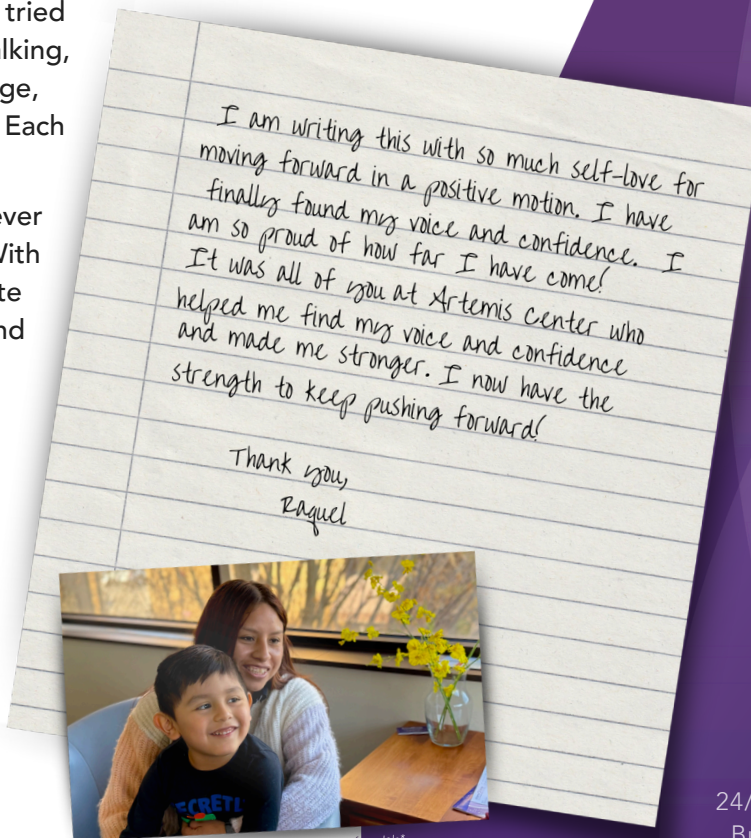 tried
alking,
ge,
Each
ever
With
te
nd
I am writing this with so much self-love for
moving forward in a positive motion. I have
finally found my voice and confidence. I
am so proud of how far I have come!
It was all of you at Artemis Center who
helped me find my voice and confidence
and made me stronger. I now have the
strength to keep pushing forward!
Thank you,
Raquel
24/